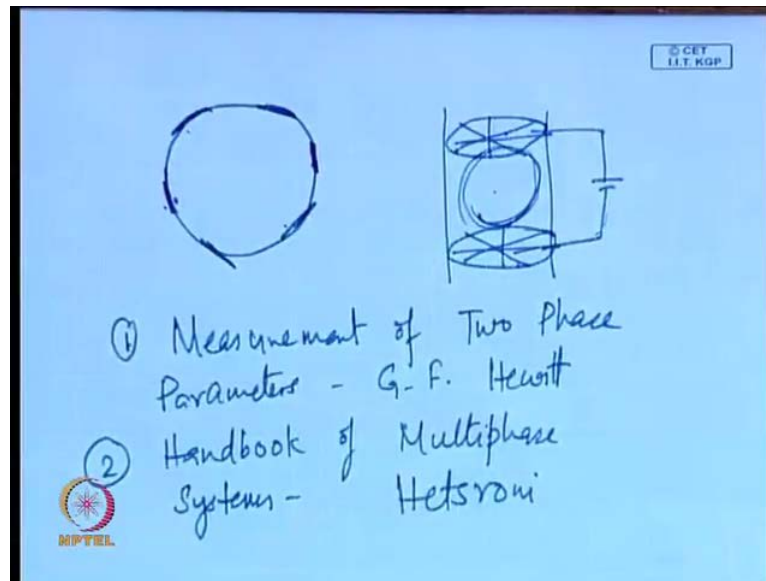 © CET
I.I.T. KGP
① Measurement of Two Phase
Parameters - G. F. Hewitt
② Handbook of Multiphase
Systems - Hetsroni
NPTEL